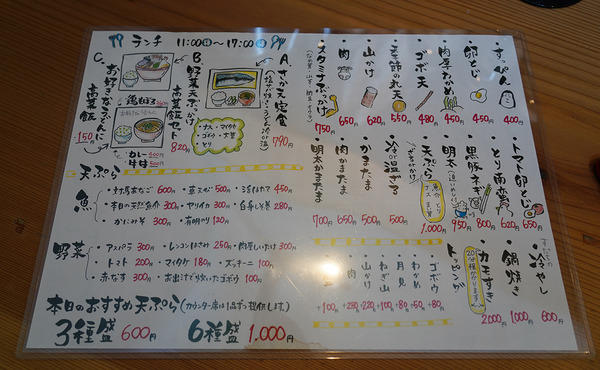 ランチ 11:00~17:00
A. さかえ定食
790円
B. 野菜天ぷら
高菜飯セット
820円
・ナス・マイタケ
・ゴボウ・大葉
・とり
C. お好きなうどんに
高菜飯
150円
・すっぴん 400円
・卵とじ 450円
・肉厚わかめ 450円
・ゴボ天 480円
・季節の丸天 550円
・山かけ 620円
・肉 650円
・スタミナぶっかけ 750円
・トマト卵とじ 620円
・とり南蛮
・黒豚ネギ 800円
・明太 750円
・天ぷら 1.000円
・冷or温ざる 500円
・かまたま 500円
・肉かまたま 650円
・明太かまたま 700円
冷やし 600円
鍋焼き 1000円
カモすき 2000円
20分程かかります
トッピング
ゴボウ +80円
わかめ +50円
月見 +80円
わさ山 +100円
山かけ +220円
肉 +250円
+100円
天ぷら
魚
・対馬あなご 600円 ・甘えび 500円
450円
・本日の天然魚介 300円 ・ヤリイカ 300円 ・白身しそ巻 280円
・かにみそ 300円 ・有明のり 120円
野菜
・アスパラ 300円 ・レンコンはさみ 250円 ・肉厚しいたけ 300円
・トマト 200円 ・マイタケ 180円 ・ズッキーニ 100円
・赤なす 300円 ・お出汁で炊いたゴボウ 100円
本日のおすすめ天ぷら(カウンター席は1品ずつ提供します。)
3種盛 600円 6種盛 1.000円